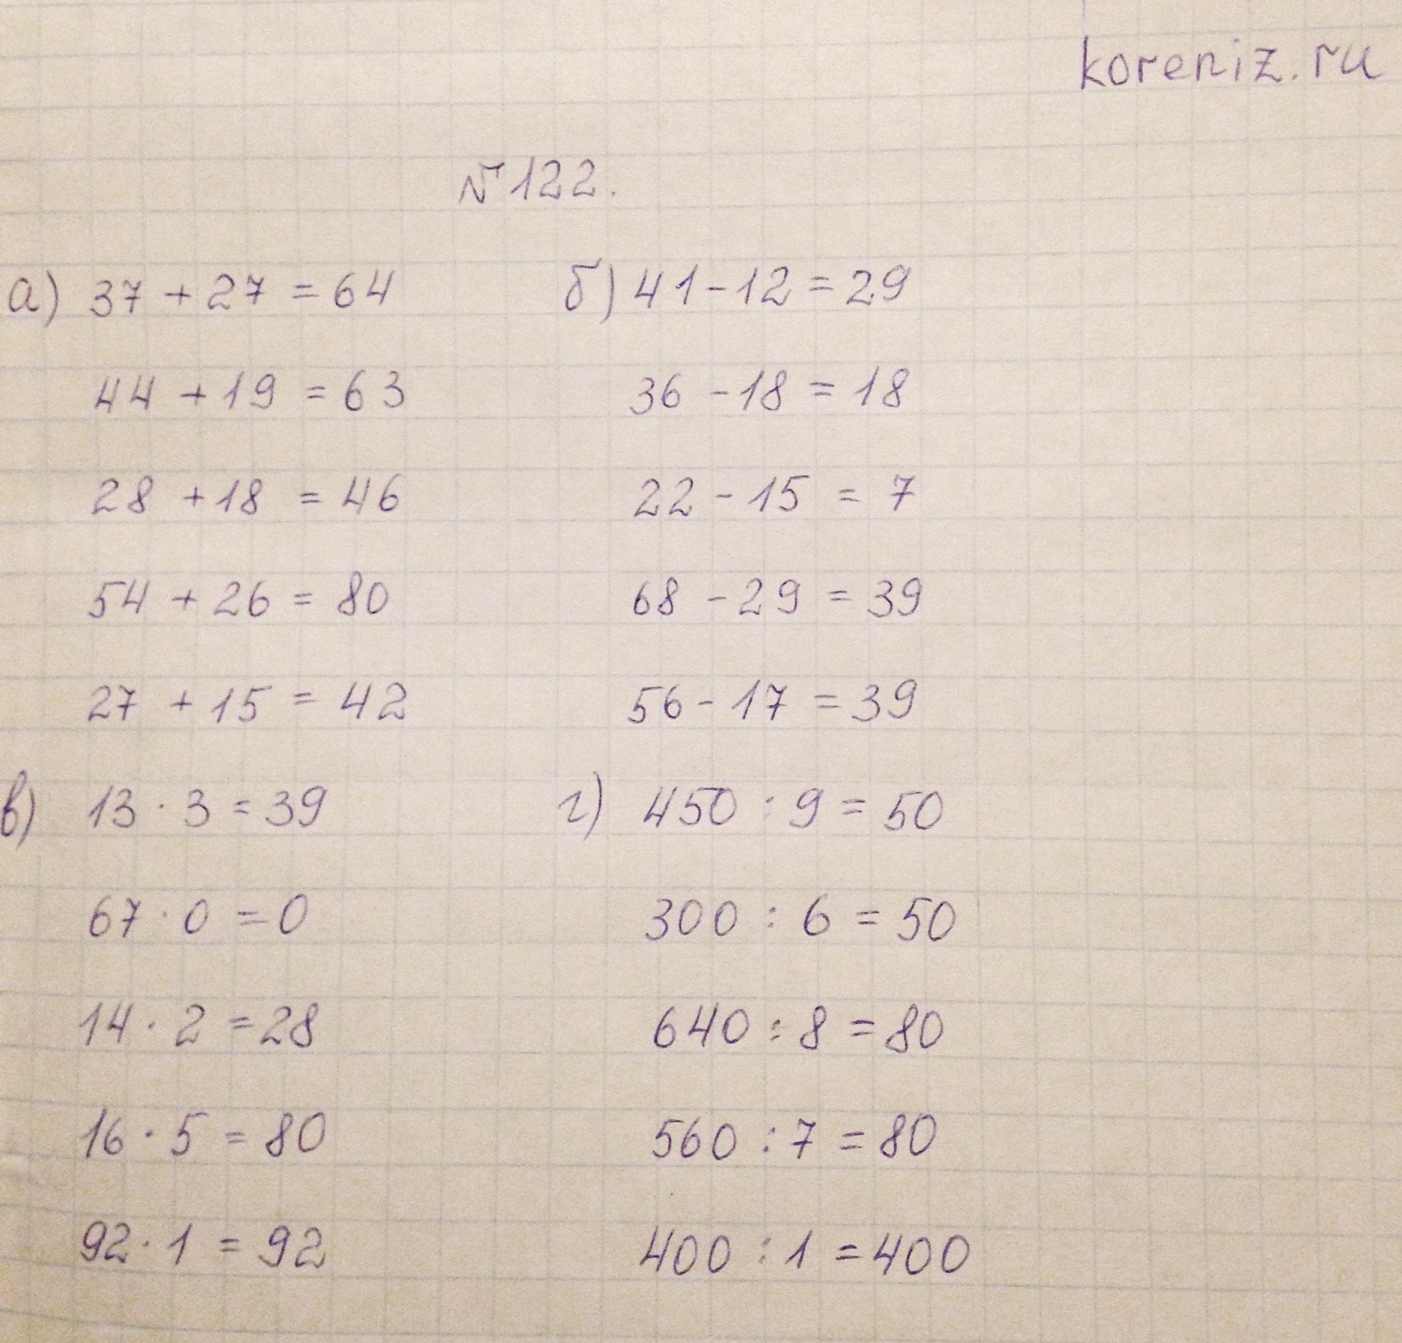 koreniz.ru
№122.
а) 37 + 27 = 64
44 + 19 = 63
28 + 18 = 46
54 + 26 = 80
27 + 15 = 42
б) 41 - 12 = 29
36 - 18 = 18
22 - 15 = 7
68 - 29 = 39
56 - 17 = 39
в) 13 · 3 = 39
67 · 0 = 0
14 · 2 = 28
16 · 5 = 80
92 · 1 = 92
г) 450 : 9 = 50
300 : 6 = 50
640 : 8 = 80
560 : 7 = 80
400 : 1 = 400